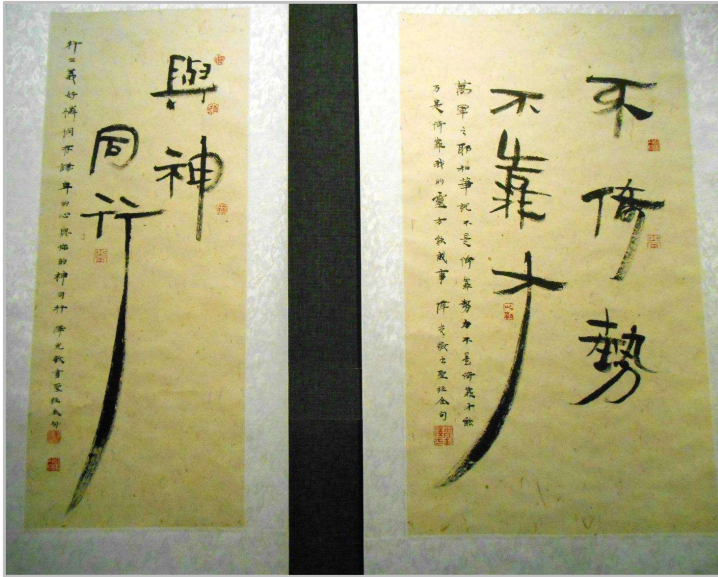 不倚勢
不靠才
萬軍之耶和華說不是倚靠勢力不是倚靠才能
乃是倚靠我的靈方能成事 聖經金句
與神
同行
行公義好憐憫存謙卑的心與你的神同行 敬書聖經金句